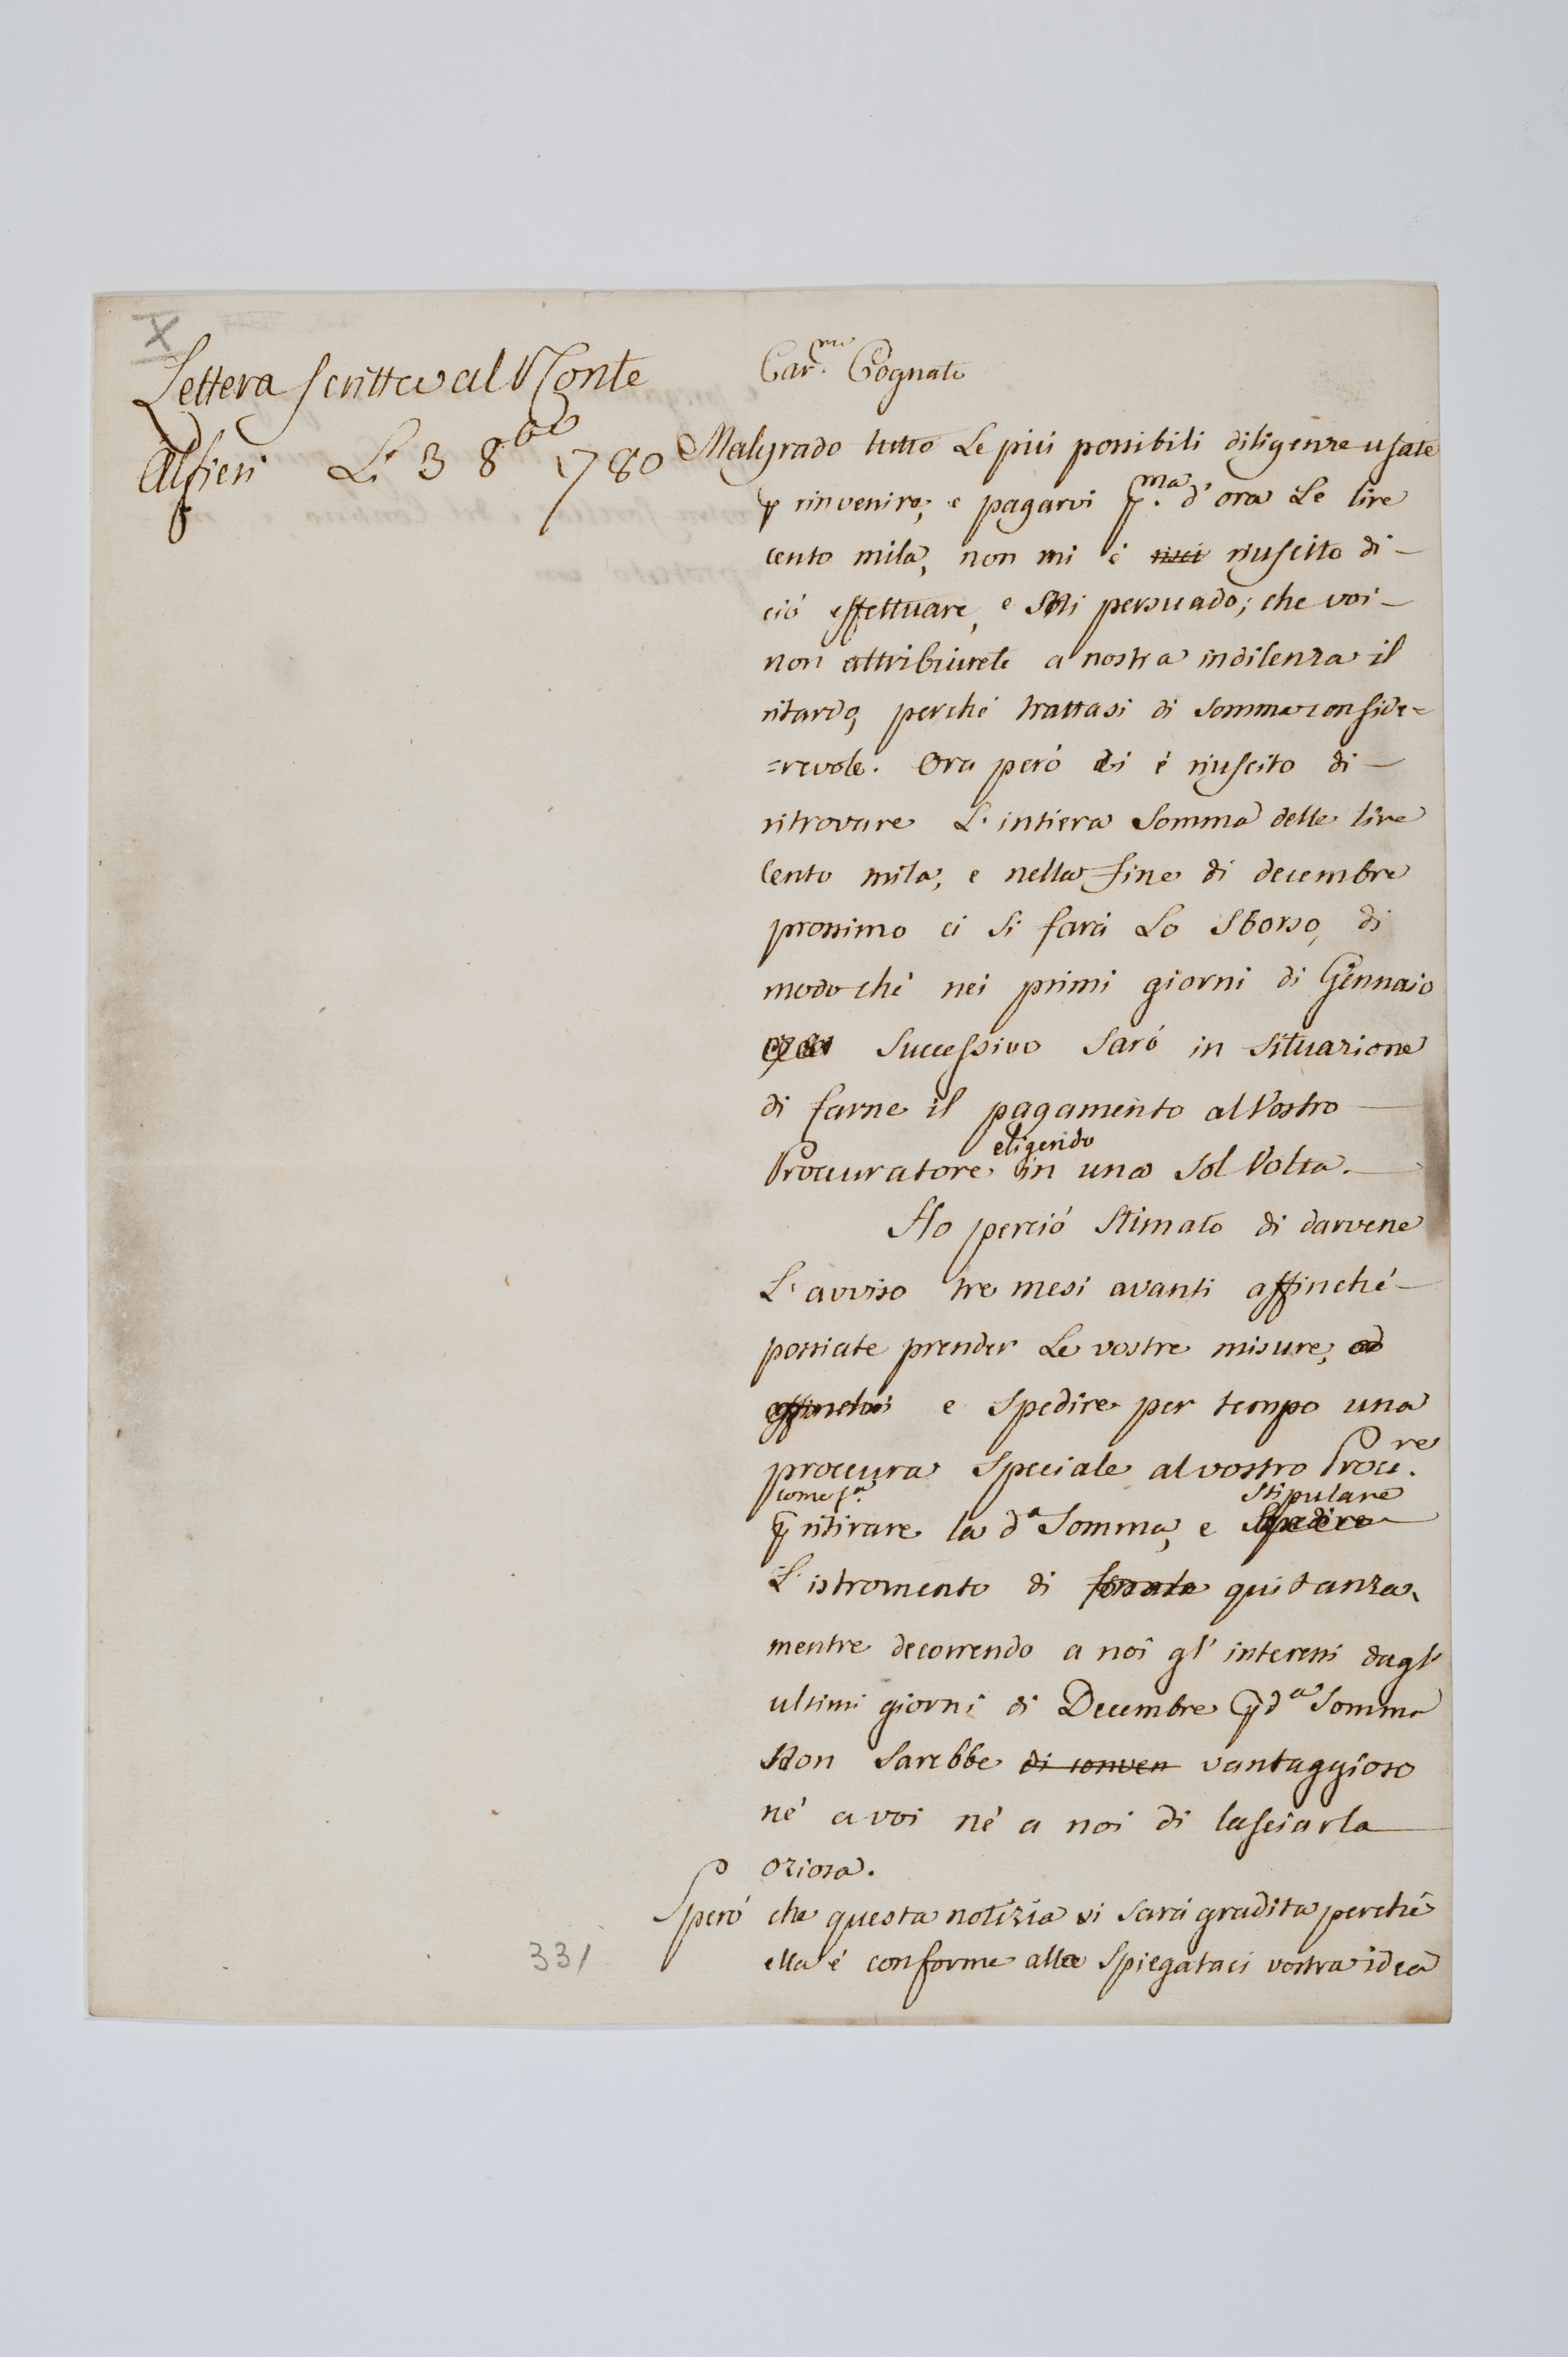 X
Lettera scritta al Conte
Alfieri Li 3 8bre 1780
Carmo. Cognato
Malgrado tutte Le più possibili diligenze usate
p rinvenire, e pagarvi pma. d'ora Le lire
cento mila, non mi è riusci riuscito di –
ciò effettuare, e Mi persuado; che voi –
non attribuirete a nostra indolenza il
ritardo, perché trattasi di somma conside=
=revole. Ora però ci è riuscito di –
ritrovare L'intiera Somma delle lire
Cento mila, e nella fine di decembre
prossimo ci si farà Lo Sborso, di
modo ché nei primi giorni di Gennaio
successivo sarò in situazione
di farne il pagamento al Vostro
eligendo
Procuratore in una sol Volta.
Ho perciò Stimato di darvene
L'avviso tre mesi avanti affinché –
possiate prender Le vostre misure, ed
affinché e spedire per tempo una
procura speciale al vostro Procre.
come sa.
stipulare
p ritirare la da Somma, e Spedire
L'istromento di quitanza,
mentre decorrendo a noi gl' interessi dagl'
ultimi giorni di Decembre p da Somma
Non sarebbe di conven vantaggioso
né a voi né a noi di lasciarla
oziosa.
Sperò che questa notizia vi sarà gradita perché
ella é conforme alla spiegataci vostra idea
331